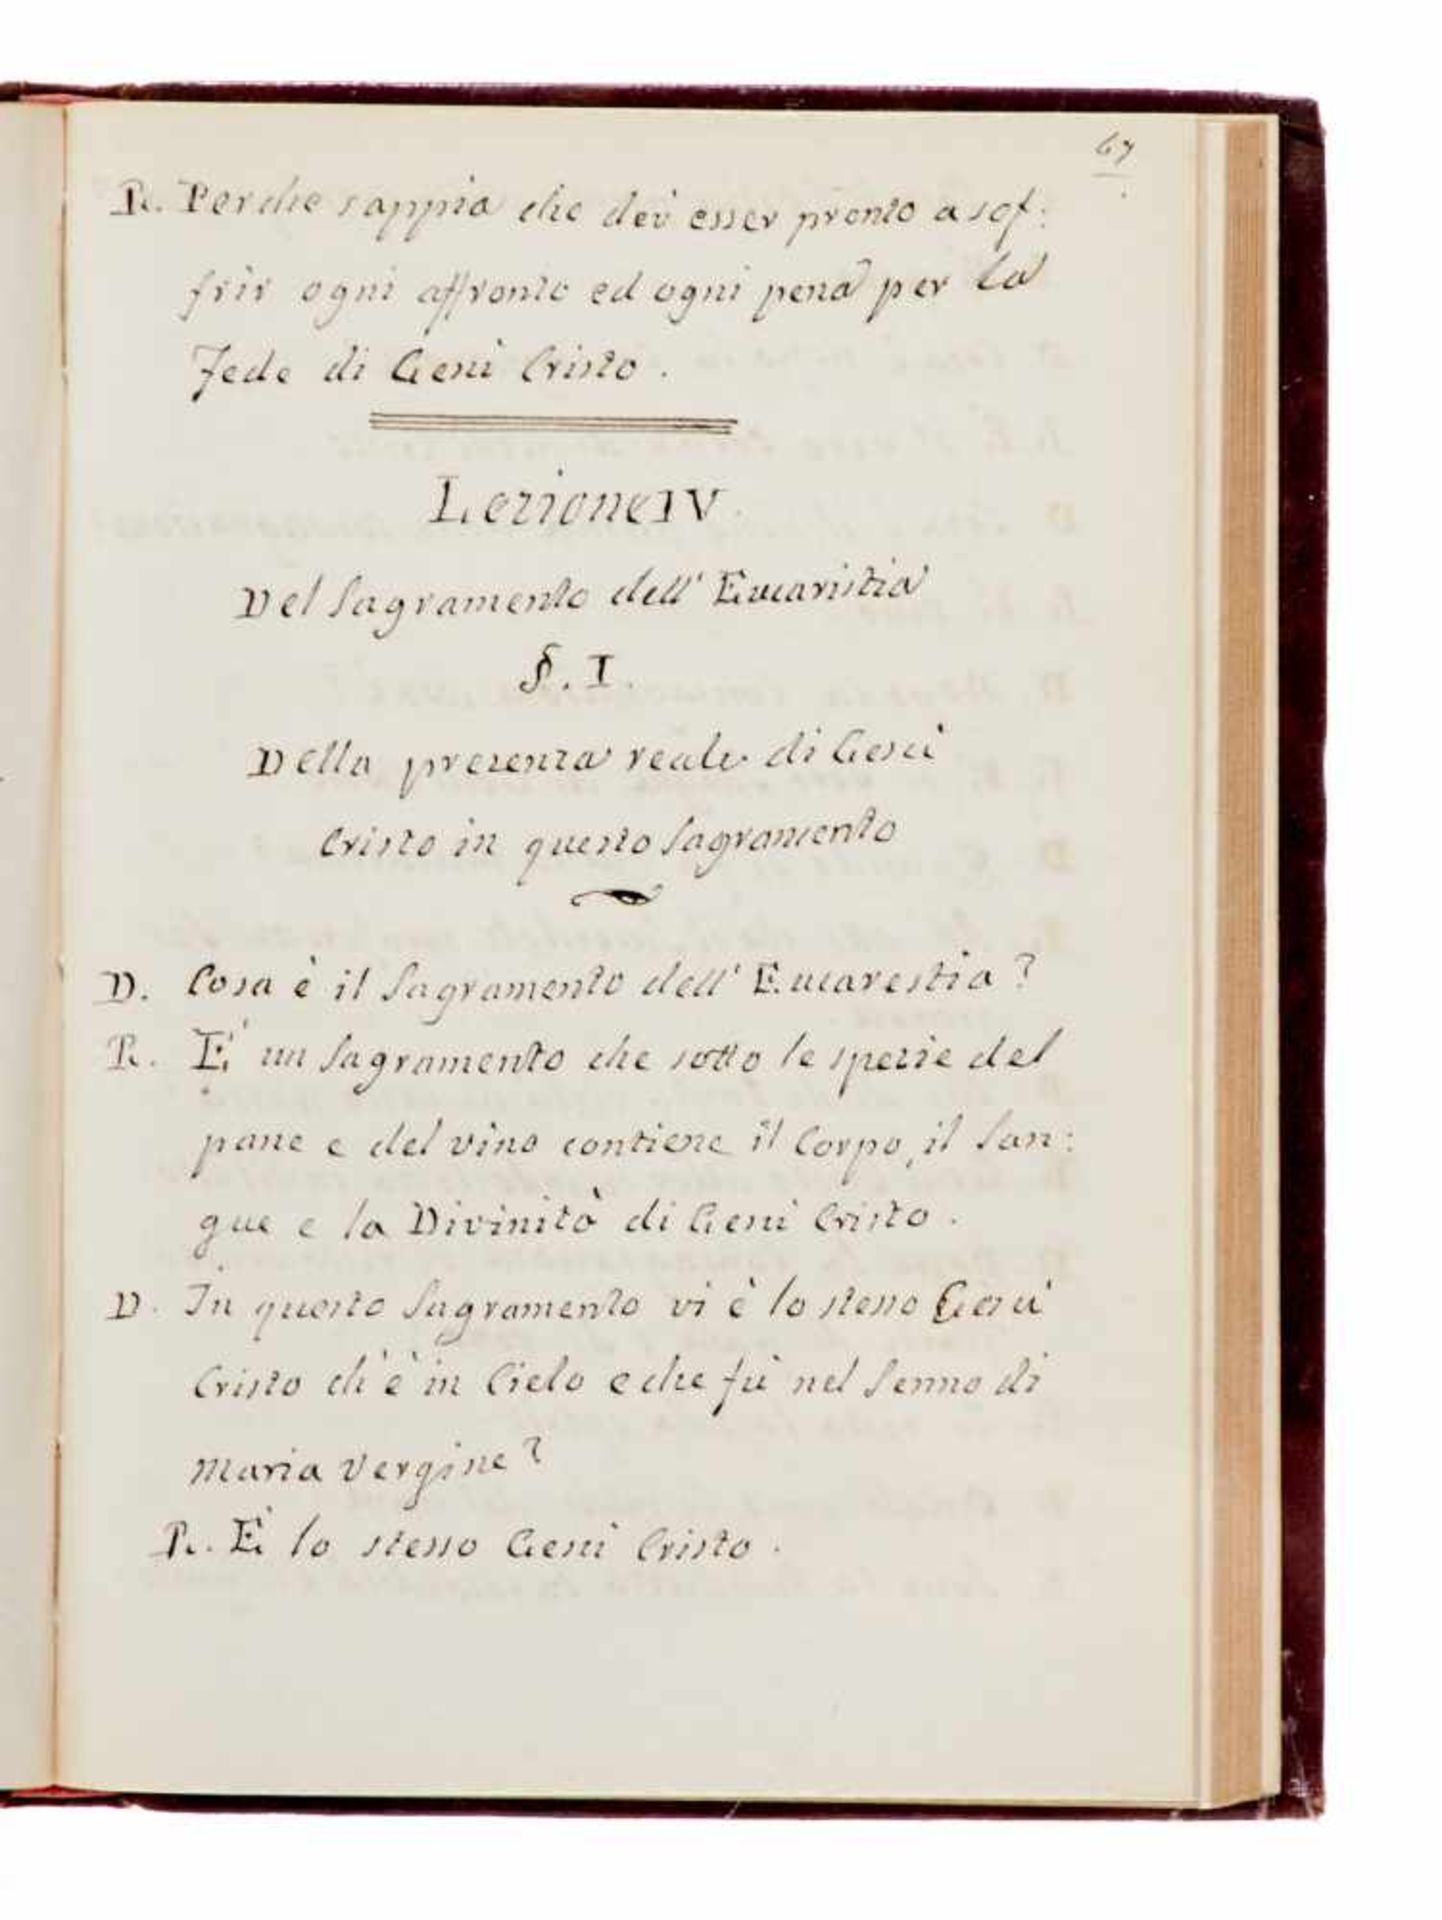 67
R. Perche sappia che dev esser pronto a sof:
frir ogni affronto ed ogni pena per la
Fede di Gesù Cristo.
Lezione IV.
Del Sagramento dell' Eucaristia
§. I.
Della presenza reale di Gesù
Cristo in questo Sagramento
D. Cosa è il Sagramento dell' Eucarestia?
R. E' un Sagramento che sotto le spezie del
pane e del vino contiene il Corpo, il San:
gue e la Divinità di Gesù Cristo.
D. In questo Sagramento vi è lo stesso Gesù
Cristo ch'è in Cielo e che fù nel Senno di
Maria Vergine?
R. E' lo stesso Gesù Cristo.